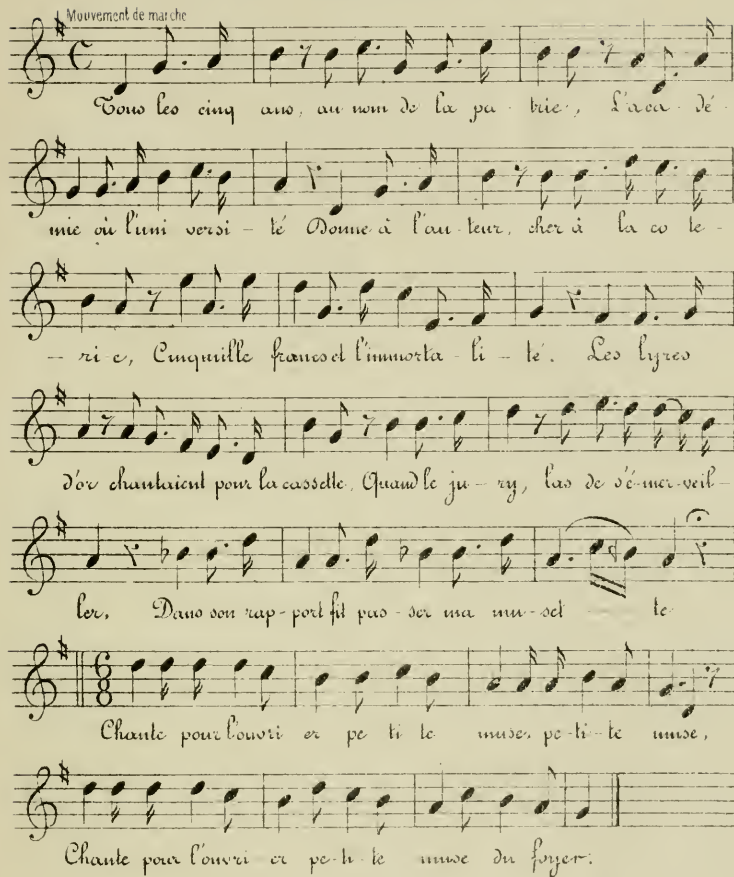 Mouvement de marche
Tous les cinq ans, au nom de la pa - trie, L'aca - dé -
mie où l'uni versi - té Donne à l'au - teur, cher à la co te -
- ri - e, Cinq mille francs et l'immorta - li - té. Les lyres
d'or chantaient pour la cassette, Quand le ju - ry, las de s'é - mer - veil -
ler, Dans son rap - port fit pas - ser ma mu - set te
Chante pour l'ouvri er pe ti te muse, pe - ti - te muse,
Chante pour l'ouvri er pe - ti - te muse du foyer.